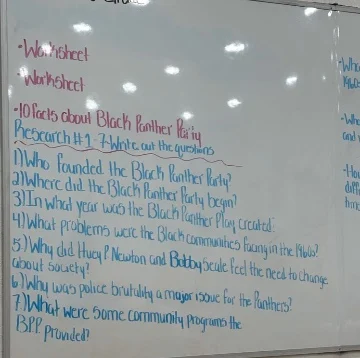 ·Worksheet
·Worksheet
·10 facts about Black Panther Party
Research #1-7-Write out the questions
1) Who founded the Black Panther Party?
2) Where did the Black Panther Party begin?
3) In what year was the Black Panther Play created:
4) What problems were the Black communities facing in the 1960s?
5.) Why did Huey P. Newton and Bobby Seale feel the need to change
about society?
6.) Why was police brutality a major issue for the Panthers?
7) What were some community programs the
BPP provided?
·Wha
1960s
·Wh
and
·How
diff